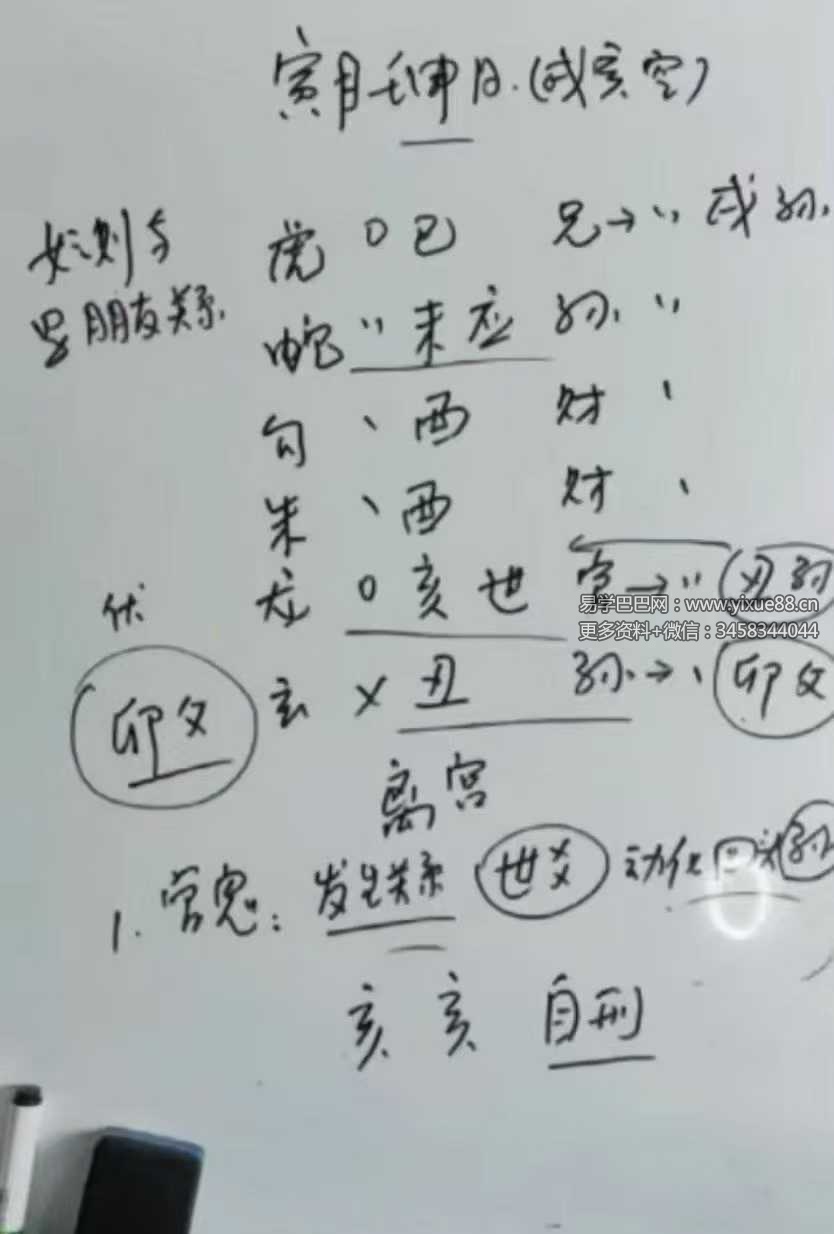 寅月壬申日.(戌亥空)
女测与
男朋友关系.
虎 O 巳 兄→〃 戌孙.
蛇 〃 未应 孙. 〃
勾 、 酉 财 、
朱 、 酉 财 、
伏 龙 O 亥 世 官→〃 丑孙
易学巴巴网:www.yixue88.cn
更多资料+微信:3458344044
卯父 玄 X 丑 孙.→、 卯父
离宫
1. 官鬼: 发生关系 世爻 动化回头
亥 亥 自刑